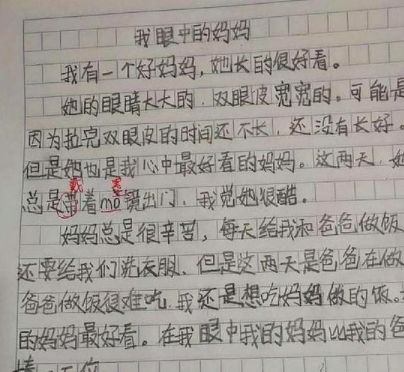 我眼中的妈妈
我有一个好妈妈，她长的很好看。
她的眼睛大大的，双眼皮宽宽的。可能是
因为拉完双眼皮的时间还不长，还没有长好。
但是她也是我心中最好看的妈妈。这两天，她
戴 墨
总是带着mò镜出门，我觉她很酷。
妈妈总是很辛苦，每天给我和爸爸做饭
还要给我们洗衣服。但是这两天是爸爸在做
爸爸做饭很难吃，我还是想吃妈妈做的饭。
的妈妈最好看。在我眼中我的妈妈以我的爸